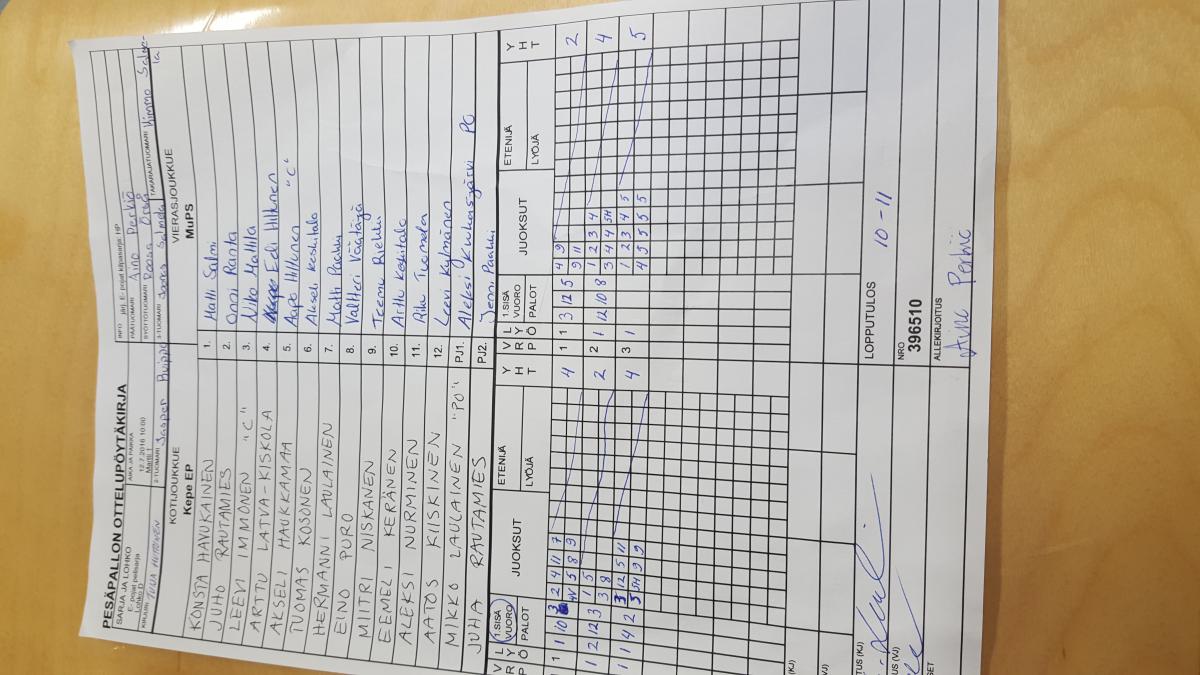 PESÄPALLON OTTELUPÖYTÄKIRJA
SARJA JA LOHKO
E- pojat pelisarja
Lohko D
AIKA JA PAIKKA
12.7.2016 10:00
INFO järj. E- pojat kilpasarja: HP
PÄÄTUOMARI Aino Perkiö
SYÖTTÖTUOMARI Roosa
KIRJURI TUIJA HUTONEN
2-TUOMARI Jasper
3-TUOMARI Joona Salmela
TAKARAJATUOMARI Kimmo Salmela
KOTIJOUKKUE
Kepe EP
VIERASJOUKKUE
MuPS
KONSTA HAVUKAINEN 1. Matti Salmi
JUHO RAUTAMIES 2. Onni Ranta
LEEVI IMMONEN "C" 3. Niko Mattila
ARTTU LATVA-KISKOLA 4. Eeli Hiltunen
AKSELI HAUKKAMAA 5. Aapo Hiltunen "C"
TUOMAS KOSONEN 6. Akseli Keskitalo
HERMANNI LAULAINEN 7. Matti Paakki
EINO PURO 8. Valtteri Väätäjä
MIITRI NISKANEN 9. Teemu Riekki
EEMELI KERÄNEN 10. Arttu Koskitalo
ALEKSI NURMINEN 11. Riku Tuomela
AATOS KIISKINEN 12. Leevi Kylmänen
MIKKO LAULAINEN "PO" PJ1. Aleksi Kukasjärvi PO
JUHA RAUTAMIES PJ2. Jenni Paakki
V L R Y P Ö 1.SISÄ VUORO PALOT JUOKSUT ETENIJÄ LYÖJÄ Y H T V L R Y P Ö 1.SISÄ VUORO PALOT JUOKSUT ETENIJÄ LYÖJÄ Y H T
1 1 10 3 2 4 11 7 4 1 1 3 12 5 4 9 2
4V 5 8 9 9 11
1 2 12 3 1 5 2 2 1 12 10 8 1 2 3 4 4
3 8 3 4 4 5H
1 1 4 2 3 12 5 11 4 3 1 1 2 3 4 5 5
5 5H 9 9 4 5 5 5 5
(KJ)
VJ)
LOPPUTULOS 10-11
TUS (KJ)
NRO
396510
US (VJ)
ALLEKIRJOITUS
Aino Perkiö
SET